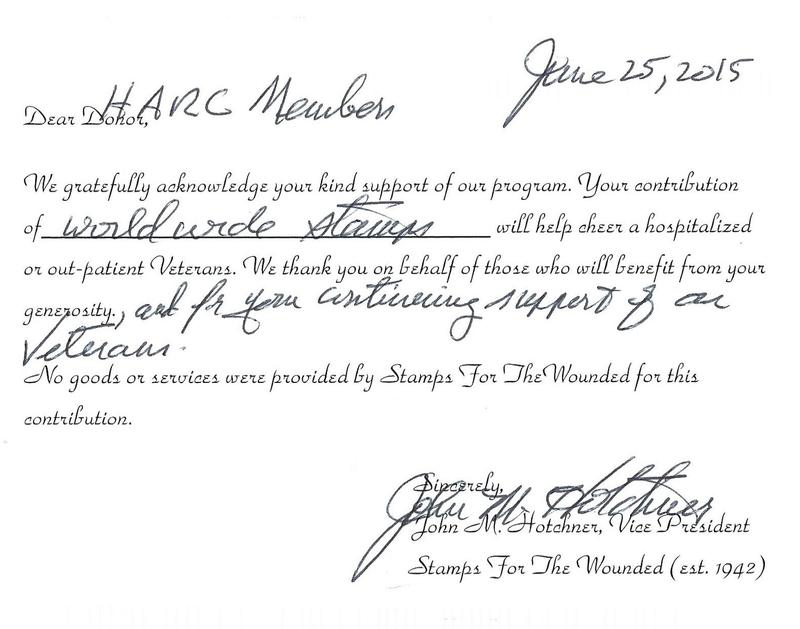 June 25, 2015
Dear Donor, HARC Members
We gratefully acknowledge your kind support of our program. Your contribution
of worldwide stamps will help cheer a hospitalized
or out-patient Veterans. We thank you on behalf of those who will benefit from your
generosity., and for your continuing support of our
Veterans.
No goods or services were provided by Stamps For TheWounded for this
contribution.
Sincerely,
John M. Hotchner
John M. Hotchner, Vice President
Stamps For The Wounded (est. 1942)